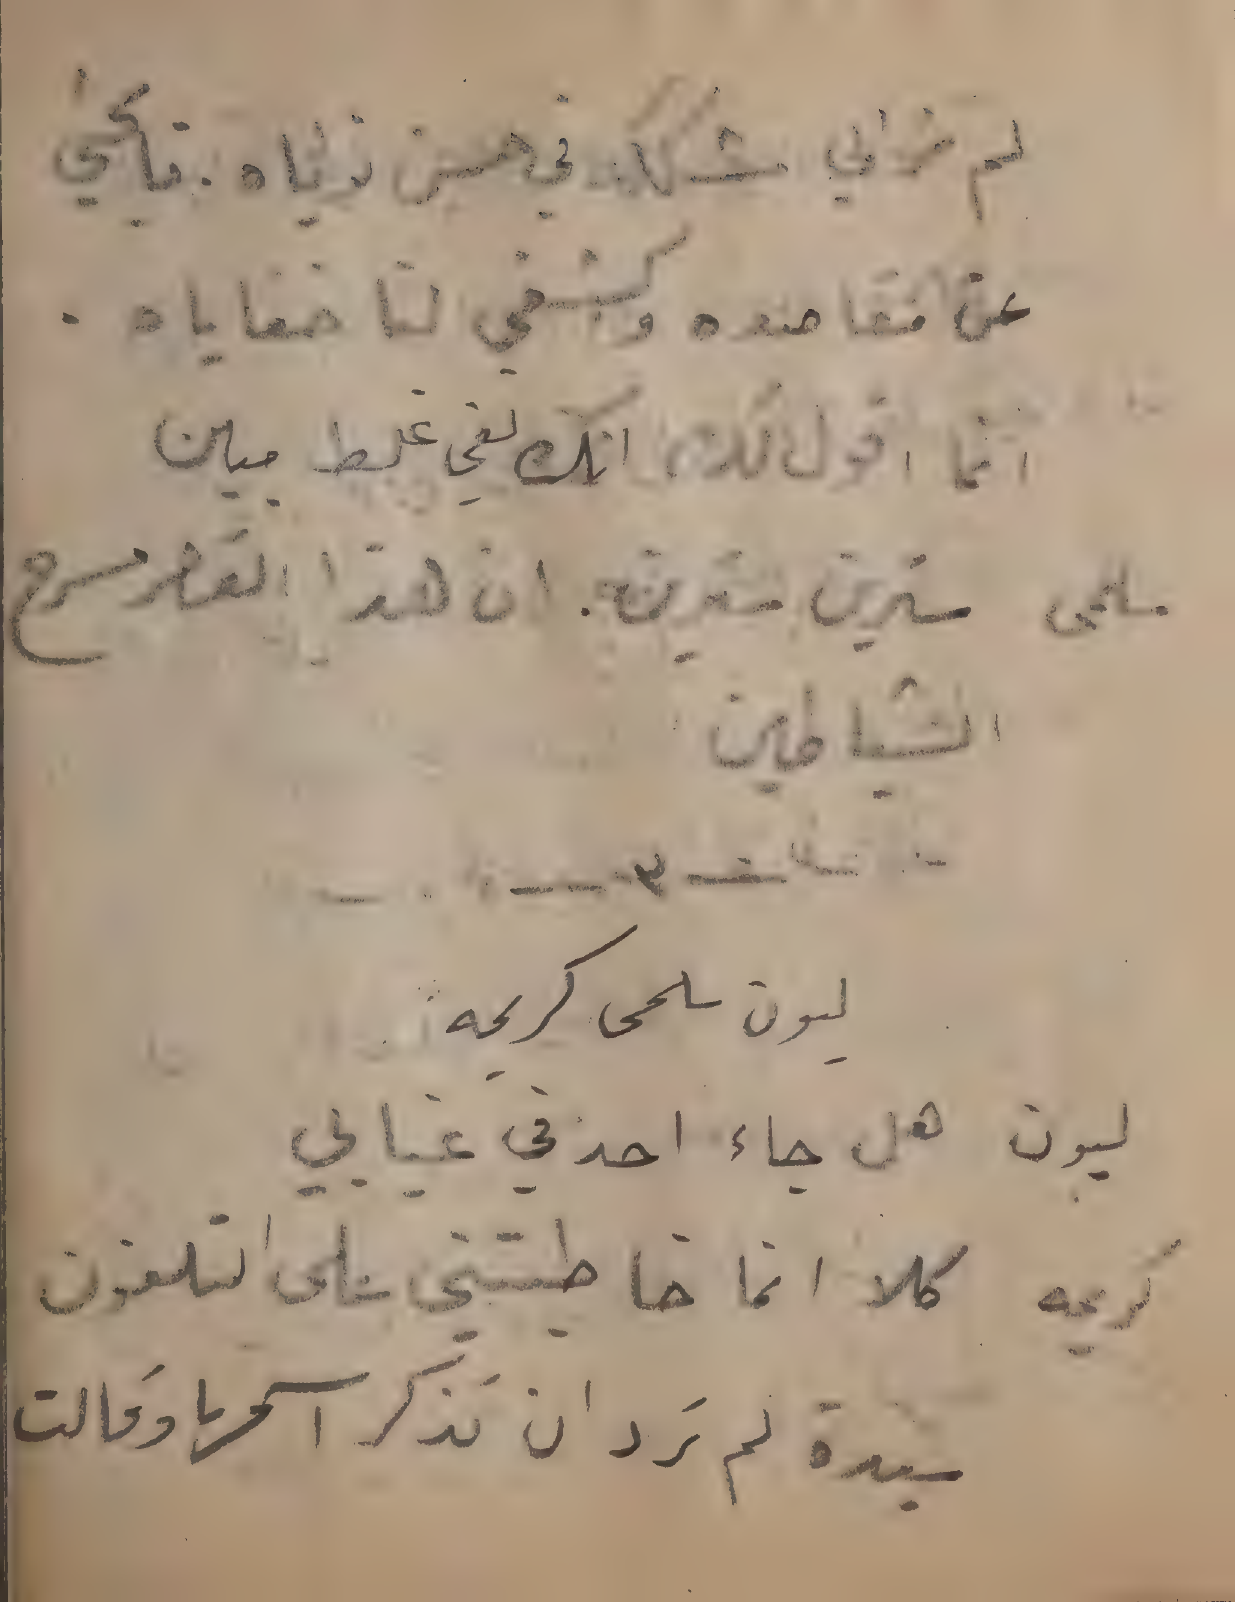 لم نزالي شككت في حسن نواياه .
عن مقاصده وكشفي لنا خفاياه .
انما اقول لك انك لفي غلط مبين
سلمى سترين سترين . ان هذا القصر مسرح
الشياطين
ـ ٣ ـ
ليون سلمى كريمه
ليون هل جاء احد في غيابي
كريمه كلا انما خاطبتني على التلفون
سيدة لم ترد ان تذكر اسمها وقالت